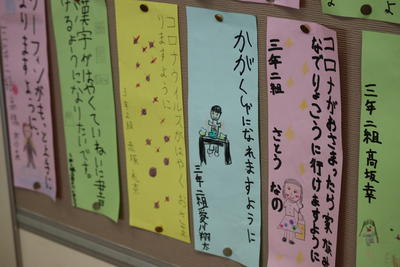 三年二組 髙坂幸
コロナがおさまったら家
なでりょこうに行けますように
三年二組 さとう なの
かがくしゃになれますように
三年二組 愛川翔太
コロナウイルスがはやくおさま
りますように
三年二組
漢字がはやくていねいに書
けるようになりたいです。
ーフィンがもっとじょうずに
なりますように